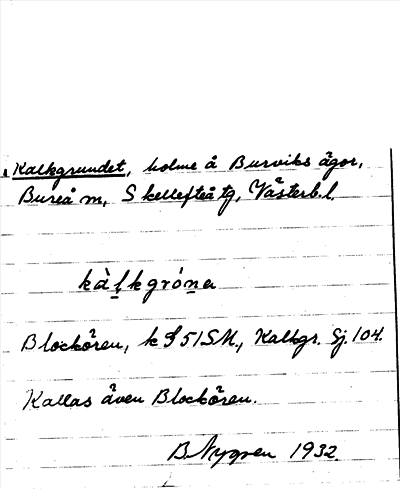 Kalkgrundet, holme å Burviks ägor,
Bureå m, Skellefteå tg, Västerb. l.
kàl̠kgrón̠a
Blockören, k S 51 SM., Kalkgr. Sj. 104.
Kallas även Blockören.
B. Nygren 1932.